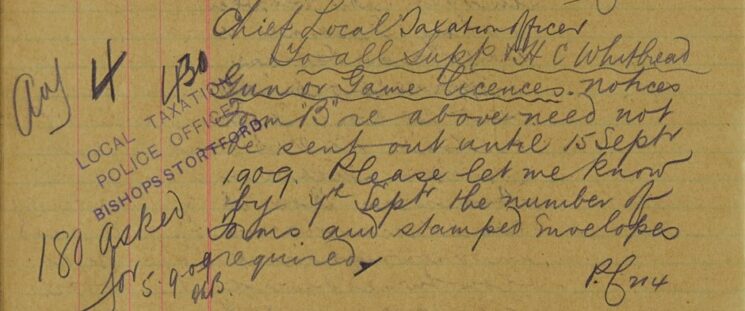 Chief Local Taxation Officer
To all Supp & H C Whitbread
Gun or Game licences. notices
Form "B" re above need not
be sent out until 15 Septr
1909. Please let me know
by 4th Septr the number of
Forms and stamped Envelopes
required.
Aug 4 430
LOCAL TAXATION
POLICE OFFICE
BISHOPS STORTFORD.
180 asked
for 5-9-09